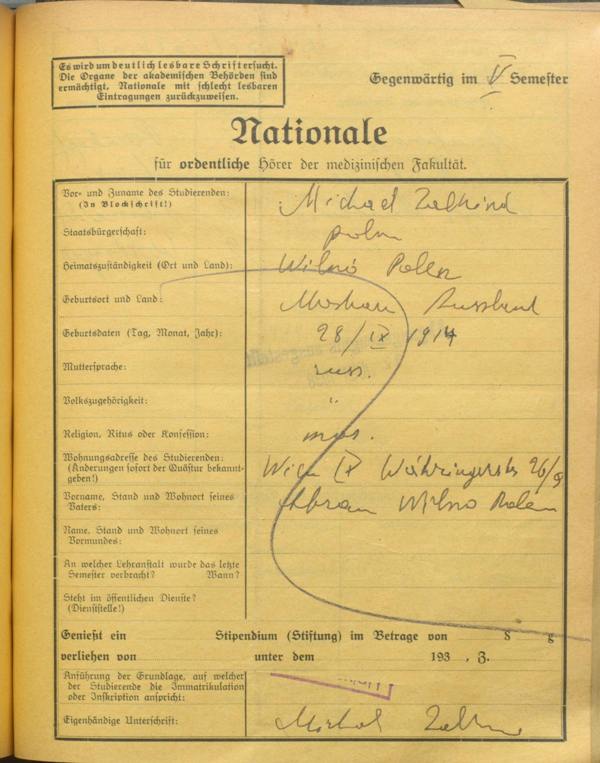 Es wird um deutlich lesbare Schrift ersucht.
Die Organe der akademischen Behörden sind
ermächtigt, Nationale mit schlecht lesbaren
Eintragungen zurückzuweisen.
Gegenwärtig im V Semester
Nationale
für ordentliche Hörer der medizinischen Fakultät.
Vor- und Zuname des Studierenden: Michael Zalkind
(In Blockschrift!)
Staatsbürgerschaft: poln
Heimatszuständigkeit (Ort und Land): Wilno Polen
Geburtsort und Land: Moskau Russland
Geburtsdaten (Tag, Monat, Jahr): 28/IX 1914
Muttersprache: russ.
Volkszugehörigkeit: "
Religion, Ritus oder Konfession: mos.
Wohnungsadresse des Studierenden: Wien IX Währingerstr 26/9
(Änderungen sofort der Quästur bekannt-
geben!)
Vorname, Stand und Wohnort seines Abram Wilno Polen
Vaters:
Name, Stand und Wohnort seines
Vormundes:
An welcher Lehranstalt wurde das letzte
Semester verbracht? Wann?
Steht im öffentlichen Dienste?
(Dienststelle!)
Genießt ein Stipendium (Stiftung) im Betrage von S g
verliehen von unter dem 193 , Z.
Anführung der Grundlage, auf welcher
der Studierende die Immatrikulation
oder Inskription anspricht:
Eigenhändige Unterschrift: